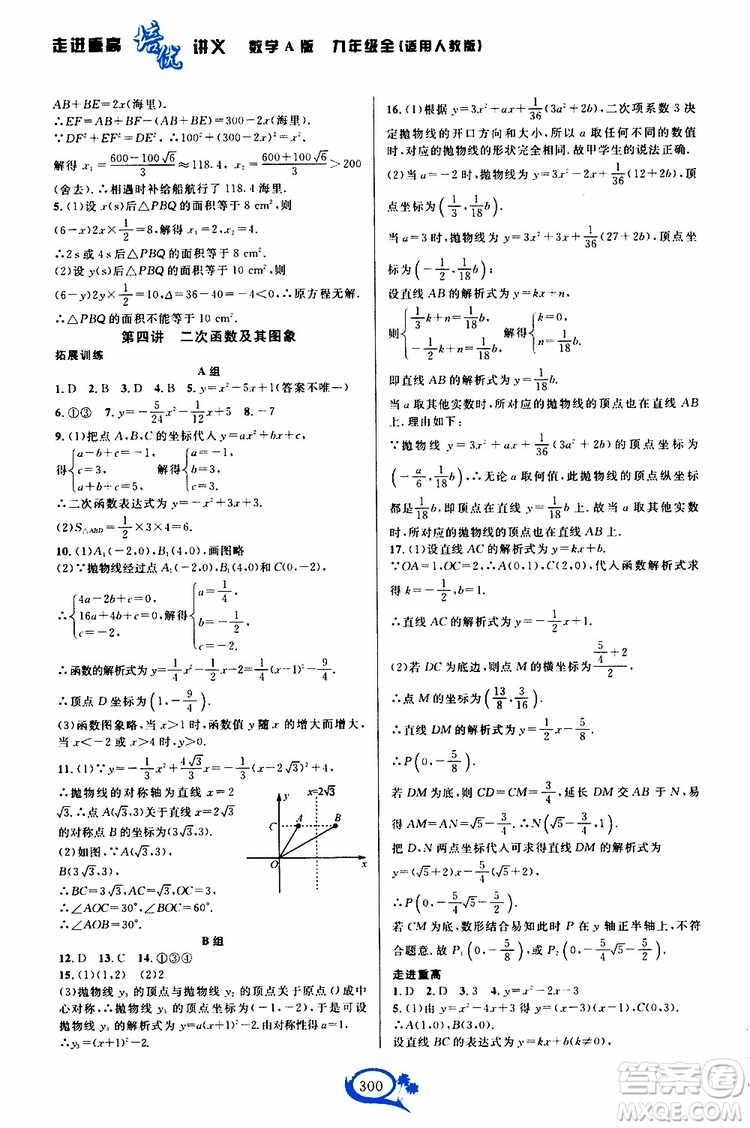 走进重高 培优 讲义 数学A版 九年级全(适用人教版)
AB+BE=2x(海里).
∴EF=AB+BC-(AB+BE)-CF=300-2x(海里).
∵DF²+EF²=DE², ∴100²+(300-2x)²=x²
解得 x₁=(600-100√6)/3≈118.4, x₂=(600+100√6)/3>200
(舍去). ∴相遇时补给船航行了 118.4 海里.
5. (1)设 x(s)后△PBQ 的面积等于 8 cm²,
(6-x)2x×1/2=8, 解得 x₁=2, x₂=4.
∴2s 或 4s 后△PBQ 的面积等于 8 cm².
(2)设 y(s)后△PBQ 的面积等于 10 cm²,
(6-y)2y×1/2=10, y²-6y+10=0, Δ<0, ∴原方程无解.
∴△PBQ 的面积不可能等于 10 cm².
第四讲 二次函数及其图象
拓展训练
A 组
1. D 2. B 3. D 4. B 5. y=x²-5x+1(答案不唯一)
6. ①③ 7. y=-5/24x²-1/12x+5 8. -7
9. (1)把点 A,B,C 的坐标代入 y=ax²+bx+c,
得{a-b+c=0, c=3, 4a+2b+c=3. 解得{a=-1, b=2, c=3.
∴二次函数表达式为 y=-x²+2x+3.
(2)S△ABD=1/2×3×4=6.
10. (1)A₁(-2,0),B₁(4,0),画图略
(2)∵抛物线经过点 A₁(-2,0),B₁(4,0),C₁(0,-2),
∴{4a-2b+c=0, 16a+4b+c=0, c=-2, ∴{a=1/4, b=-1/2, c=-2.
∴函数的解析式为 y=1/4x²-1/2x-2=1/4(x-1)²-9/4.
∴顶点 D 坐标为(1,-9/4)
(3)函数图象略,当 x>1 时,函数值 y 随 x 的增大而增大,
当 x<1 时,函数值 y 随 x 的增大而减小.
11. (1)∵y=-1/3x²+4√3/3x=-1/3(x-2√3)²+4,
∴抛物线的对称轴为直线 x=2
√3. ∴点 A(√3,3)关于直线 x=2√3
的对称点 B 为(3√3,3).
(2)如图,∵A(√3,3),
B(3√3,3),
∴AC=√3,BC=3√3,OC=3.
∴∠AOC=30°,∠BOC=60°.
∴∠AOB=30°.
y x=2√3
C A B
O x
B 组
12. D 13. C 14. ①③④
15. (1)(1,2) (2)2
(3)抛物线 y₃ 的顶点与抛物线 y₂ 的顶点关于原点 O 成中
心对称,抛物线 y₃ 与抛物线 y₂ 的开口大小相同,方向相反,
抛物线 y₃ 的函数解析式为 y=a(x+1)²-2. 由对称性得 a=1,
∴y₃=(x+1)²-2.
16. (1)根据 y=3x²+ax+1/36(3a²+a+2),二次项系数 3 决
定抛物线的开口方向和大小,所以 a 取任何不同的数值
时,对应的抛物线的形状完全相同. 故甲学生的说法正确.
(2)当 a=-2 时,抛物线 y=3x²-2x+1/36(12-2+2),顶
点坐标为(1/3,1/18)
当 a=3 时,抛物线 y=3x²+3x+1/36(27+3+2),顶点坐
标为(-1/2,1/18)
设直线 AB 的解析式为 y=kx+n,
则{1/3k+n=1/18, -1/2k+n=1/18. 解得{k=0, n=1/18.
即直线 AB 的解析式为 y=1/18.
当 a 取其他实数时,所对应的抛物线的顶点也在直线 AB
上. 理由如下:
∵抛物线 y=3x²+ax+1/36(3a²+a+2)的顶点坐标为
(-a/6,1/18), ∴无论 a 取何值,此抛物线的顶点纵坐标
都是1/18,始终与直线 AB 重合. 故当 a 取其他实数
时,所对应的抛物线的顶点也在直线 AB 上.
17. (1)设直线 AC 的解析式为 y=kx+b.
∵OA=1,OC=2, ∴A(0,1),C(2,0),代入函数解析式
求得 k=-1/2,b=1,
∴直线 AC 的函数解析式为 y=-1/2x+1.
(2)若 DC 为底边, ∴点 M 的横坐标为(5/4+2)/2=13/8.
∴点 M 的坐标为(13/8,3/16).
∴直线 DM 的解析式为 y=1/2x-5/8.
∴P(0,-5/8)
若 DM 为底,则 CD=CM=3/4,延长 DM 交 AB 于 N,易
得=AM=AN=√5-3/4, ∴N(√5-3/4,1).
把 D,N 两点坐标代入可求得直线 DM 的解析式为
y=(√5+2)x-5/4√5-5/2
∴P(0,-5/4√5-5/2)
若 CM 为底,舍去,数形结合可知 P 在 y 轴正半轴上,不
合题意. 故 P₁(0,-5/8)或 P₂(0,-5/4√5-5/2).
走进重高
1. D 2. D 3. 3 4. y=-2/9x²-4/3x
5. (1)由 y=x²-4x+3 得到 y=(x-3)(x-1),C(0,3).
∴A(1,0),B(3,0).
设直线 BC 的表达式为 y=kx+b(k≠0),
300
答案圈
MXQE.COM